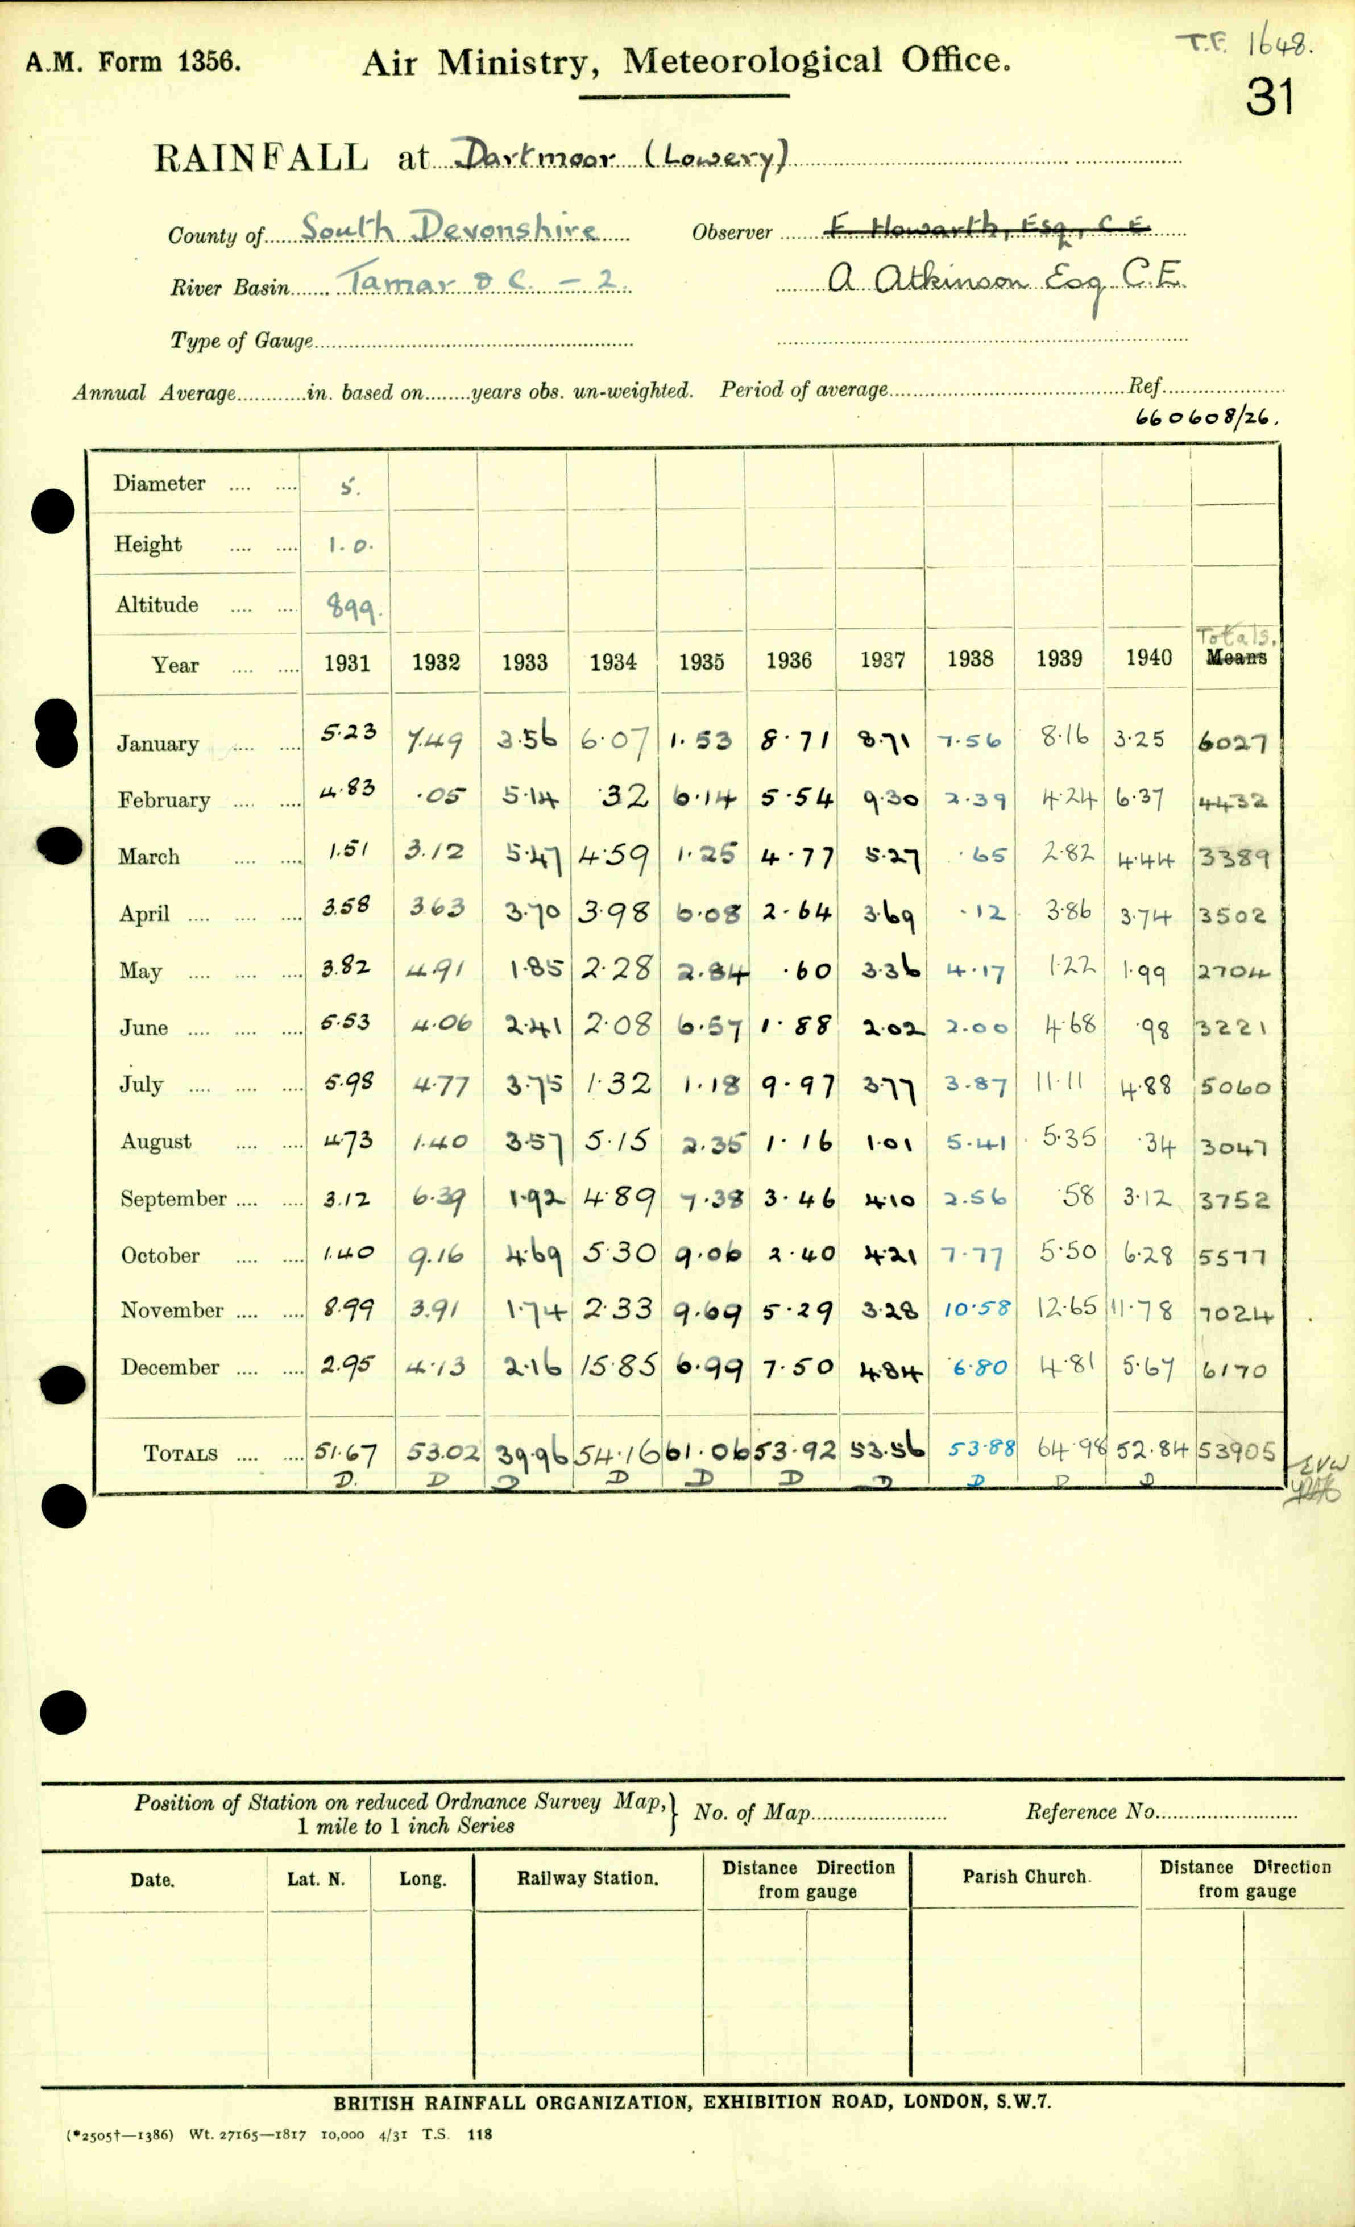 T.F. 1648.
A.M. Form 1356. Air Ministry, Meteorological Office.
31
RAINFALL at Dartmoor (Lowery)
County of South Devonshire Observer F. Howarth, Esq., C.E
River Basin Tamar & C. – 2. A Atkinson Esq C.E.
Type of Gauge
Annual Average in. based on years obs. un-weighted. Period of average Ref.
660608/26.
Diameter 5.
Height 1.0.
Altitude 899.
Totals.
Year 1931 1932 1933 1934 1935 1936 1937 1938 1939 1940 Means
January 5.23 7.49 3.56 6.07 1.53 8.71 8.71 7.56 8.16 3.25 6027
February 4.83 .05 5.14 .32 6.14 5.54 9.30 2.39 4.24 6.37 4432
March 1.51 3.12 5.47 4.59 1.25 4.77 5.27 .65 2.82 4.44 3389
April 3.58 3.63 3.70 3.98 6.08 2.64 3.69 .12 3.86 3.74 3502
May 3.82 4.91 1.85 2.28 2.84 .60 3.36 4.17 1.22 1.99 2704
June 5.53 4.06 2.41 2.08 6.57 1.88 2.02 2.00 4.68 .98 3221
July 5.98 4.77 3.75 1.32 1.18 9.97 3.77 3.87 11.11 4.88 5060
August 4.73 1.40 3.57 5.15 2.35 1.16 1.01 5.41 5.35 .34 3047
September 3.12 6.39 1.92 4.89 7.38 3.46 4.10 2.56 .58 3.12 3752
October 1.40 9.16 4.69 5.30 9.06 2.40 4.21 7.77 5.50 6.28 5577
November 8.99 3.91 1.74 2.33 9.69 5.29 3.28 10.58 12.65 11.78 7024
December 2.95 4.13 2.16 15.85 6.99 7.50 4.84 6.80 4.81 5.67 6170
TOTALS 51.67 53.02 39.96 54.16 61.06 53.92 53.56 53.88 64.98 52.84 53905
D. D D D D D D D D D
Position of Station on reduced Ordnance Survey Map, } No. of Map Reference No.
1 mile to 1 inch Series
Date. Lat. N. Long. Railway Station. Distance Direction from gauge Parish Church. Distance Direction from gauge
BRITISH RAINFALL ORGANIZATION, EXHIBITION ROAD, LONDON, S.W.7.
(*2505†—1386) Wt. 27165—1817 10,000 4/31 T.S. 118